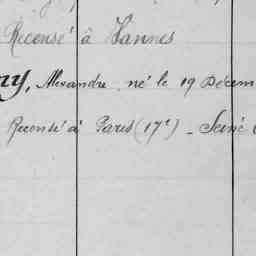 Recensé à Vannes
ny, Alexandre, né le 19 Décem
Recensé à Paris (17e) - Seine (